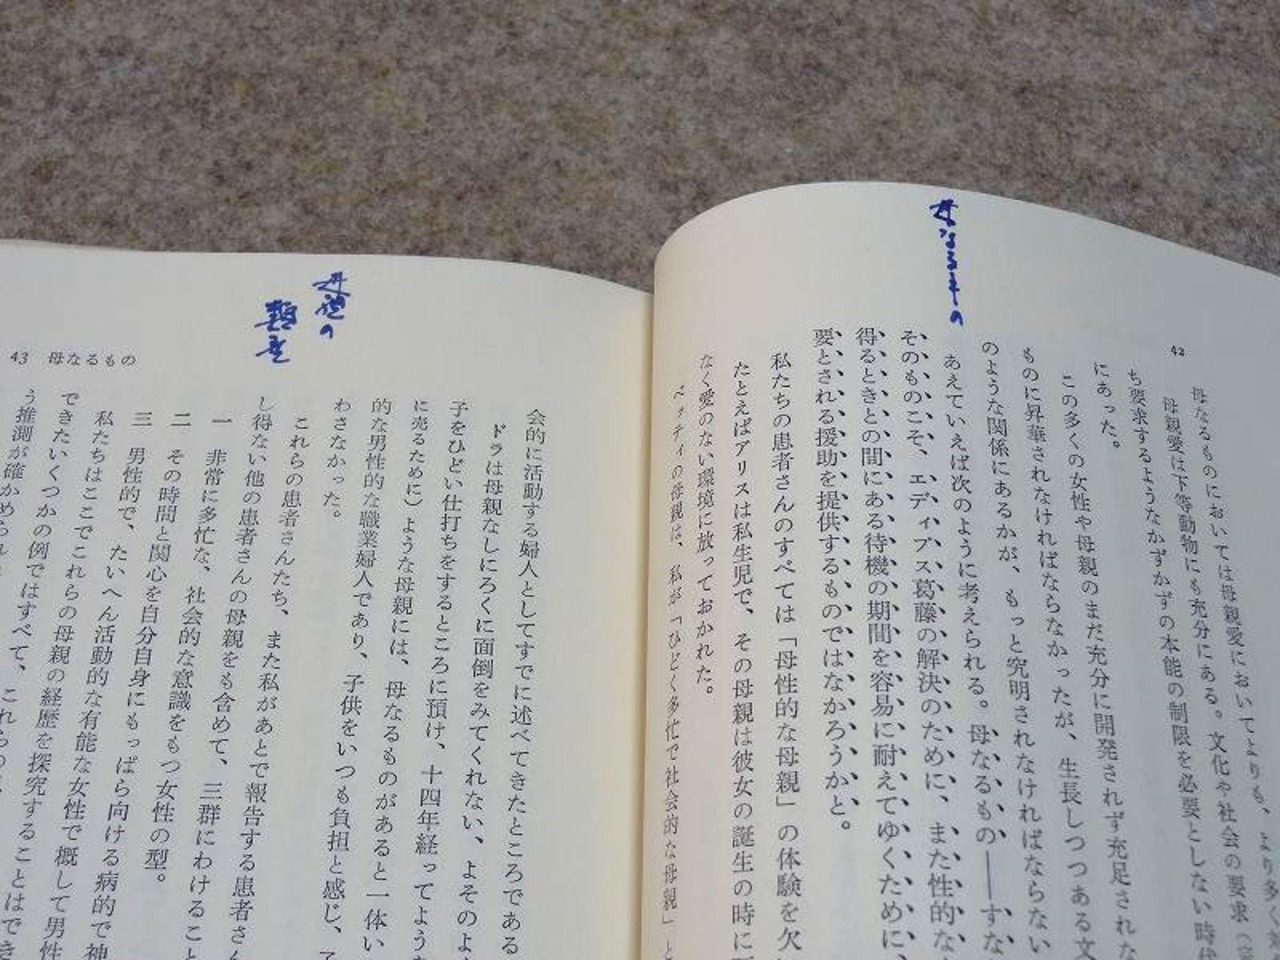 母なるもの
42
母なるものにおいては母親愛においてよりも、より多く
母親愛は下等動物にも充分にある。文化や社会の要求
ち要求するようなかずかずの本能の制限を必要としない時代
にあった。
この多くの女性や母親のまだ充分に開発されず充足されな
ものに昇華されなければならなかったが、生長しつつある文
のような関係にあるかが、もっと究明されなければならない
あえていえば次のように考えられる。母なるもの――すな
そのものこそ、エディプス葛藤の解決のために、また性的な
得るときとの間にある待機の期間を容易に耐えてゆくために、
要とされる援助を提供するものではなかろうかと。
私たちの患者さんのすべては「母性的な母親」の体験を欠
たとえばアリスは私生児で、その母親は彼女の誕生の時に
なく愛のない環境に放っておかれた。
ベッティの母親は、私が「ひどく多忙で社会的な母親」と
母親の
43 母なるもの
会的に活動する婦人としてすでに述べてきたところである
ドラは母親なしにろくに面倒をみてくれない、よそのよ
子をひどい仕打ちをするところに預け、十四年経ってよう
に売るために)ような母親には、母なるものがあると一体い
的な男性的な職業婦人であり、子供をいつも負担と感じ、
わさなかった。
これらの患者さんたち、また私があとで報告する患者さん
し得ない他の患者さんの母親をも含めて、三群にわけること
一 非常に多忙な、社会的な意識をもつ女性の型。
二 その時間と関心を自分自身にもっぱら向ける病的で神
三 男性的で、たいへん活動的な有能な女性で概して男性
私たちはここでこれらの母親の経歴を探究することはでき
できたいくつかの例ではすべて、これらの
う推測が確かめられ